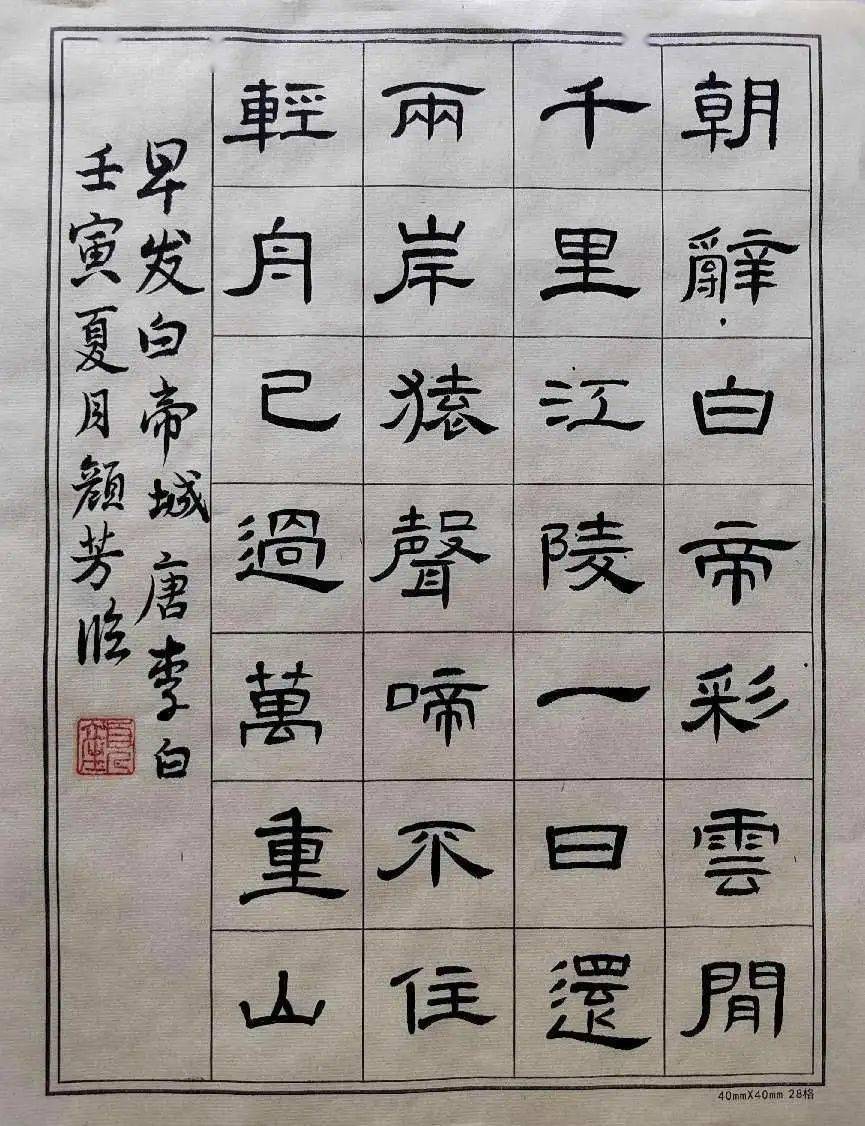 朝辭白帝彩雲間
千里江陵一日還
兩岸猿聲啼不住
輕舟已過萬重山
早发白帝城 唐 李白
壬寅夏月顏芳临
40mmX40mm 28格